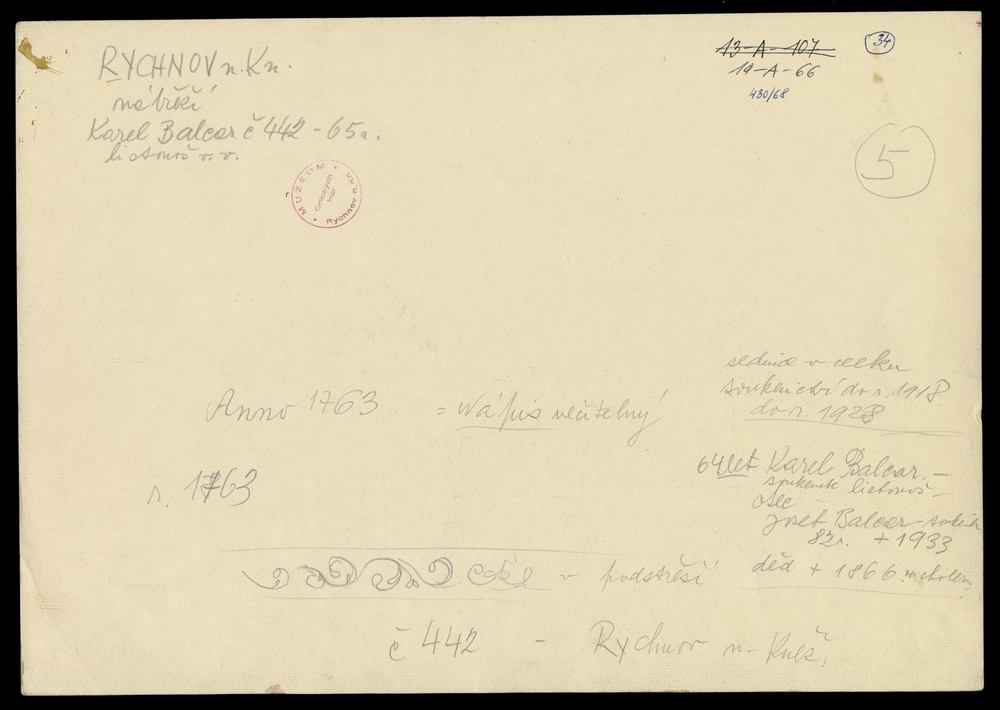 RYCHNOV n. Kn.
nábřeží
Karel Balcar č 442 - 65 r.
listonoš v. v.
MUZEUM Orlických hor Rychnov n. Kn.
13-A-107
19-A-66
430/68
34
5
v celku
soukenictví do r. 1918
do r. 1928
Anno 1763 = nápis nečitelný
r. 1763
64 let Karel Balcar -
soukeník listonoš -
otec
Josef Balcar - soukeník
82 r. + 1933
děd + 1866
v podstřeší
č 442 - Rychnov n. Kněž.